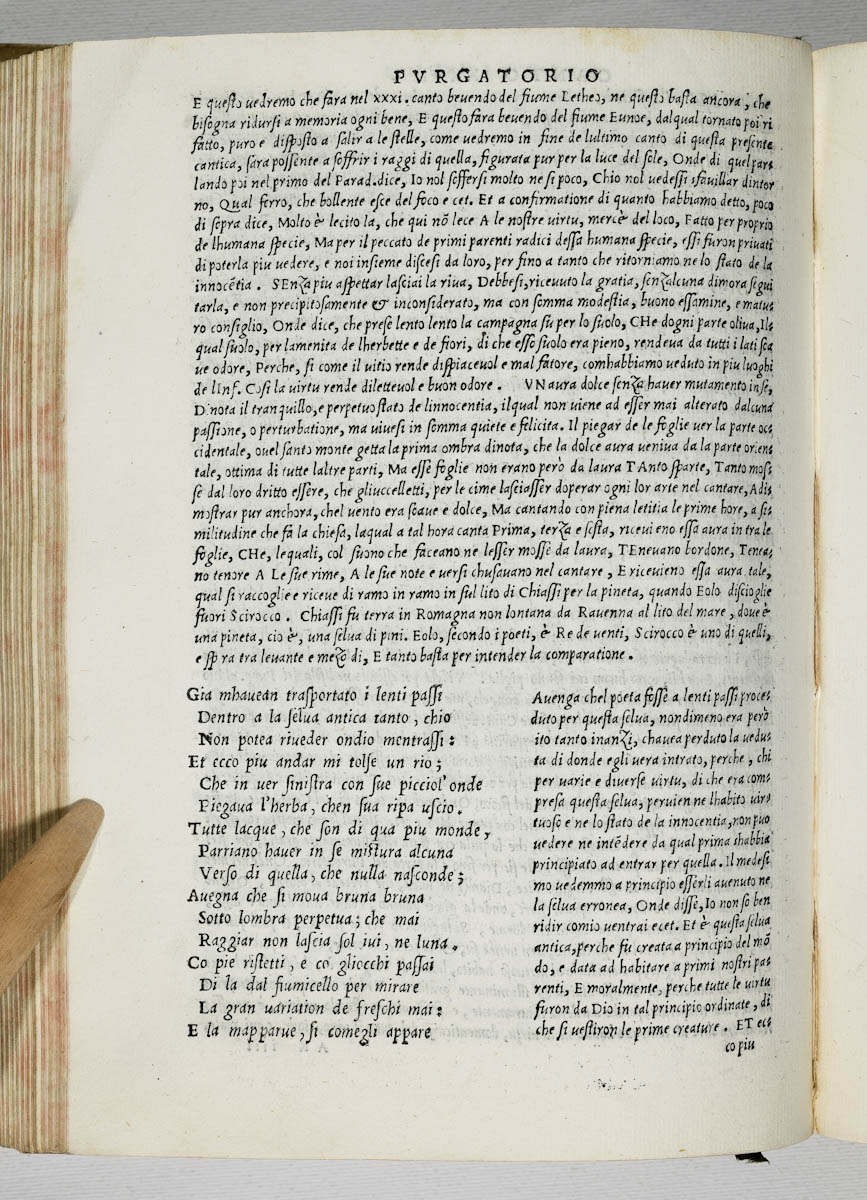 PVRGATORIO
E questo uedremo che fara nel xxxi. canto beuendo del fiume Letheo, ne questo basta ancora, che
bisogna ridursi a memoria ogni bene, E questo fara beuendo del fiume Eunoe, dalqual tornato poi ri
fatto, puro e disposto a salir a le stelle, come uedremo in fine de lultimo canto di questa presente
cantica, sara possente a soffrir i raggi di quella, figurata pur per la luce del sole, Onde di quel par
lando poi nel primo del Parad. dice, Io nol soffersi molto ne si poco, Chio nol uedessi sfauillar dintor
no, Qual ferro, che bollente esce del foco e cet. Et a confirmatione di quanto habbiamo detto, poco
di sopra dice, Molto è lecito la, che qui nõ lece A le nostre uirtu, mercè del loco, Fatto per proprio
de lhumana specie, Ma per il peccato de primi parenti radici dessa humana specie, essi furon priuati
di poterla piu uedere, e noi insieme discesi da loro, per fino a tanto che ritorniamo ne lo stato de la
innocẽtia. SEnza piu aspettar lasciai la riua, Debbesi, riceuuto la gratia, senzalcuna dimora segui
tarla, e non precipitosamente & inconsiderato, ma con somma modestia, buono essamine, e matu
ro consiglio, Onde dice, che prese lento lento la campagna su per lo suolo, CHe dogni parte oliua, Il
qual suolo, per lamenita de lherbette e de fiori, di che esso suolo era pieno, rendeua da tutti i lati soa
ue odore, Perche, si come il uitio rende dispiaceuol e mal fatore, comhabbiamo ueduto in piu luoghi
de lInf. Cosi la uirtu rende diletteuol e buon odore. VNaura dolce senza hauer mutamento in se,
Dinota il tranquillo, e perpetuo stato de linnocentia, ilqual non uiene ad esser mai alterato dalcuna
passione, o perturbatione, ma uiuesi in somma quiete e felicita. Il piegar de le foglie uer la parte oc
cidentale, ouel santo monte getta la prima ombra dinota, che la dolce aura ueniua da la parte orien
tale, ottima di tutte laltre parti, Ma esse foglie non erano però da laura TAnto sparte, Tanto mos
se dal loro dritto essere, che gliuccelletti, per le cime lasciasser doperar ogni lor arte nel cantare, A di
mostrar pur anchora, chel uento era soaue e dolce, Ma cantando con piena letitia le prime hore, a si
militudine che fà la chiesa, laqual a tal hora canta Prima, terza e sesta, riceuieno essa aura in tra le
foglie, CHe, lequali, col suono che faceano ne lesser mosse da laura, TEneuano bordone, Tenea
no tenore A Le sue rime, A le sue note e uersi chusauano nel cantare, E riceuieno essa aura tale,
qual si raccoglie e riceue di ramo in ramo in sul lito di Chiassi per la pineta, quando Eolo discioglie
fuori Scirocco. Chiassi fu terra in Romagna non lontana da Rauenna al lito del mare, doue è
una pineta, cio è, una selua di pini. Eolo, secondo i poeti, è Re de uenti, Scirocco è uno di quelli,
e sp ra tra leuante e mezo di, E tanto basta per intender la comparatione.
Gia mhauean trasportato i lenti passi
Dentro a la selua antica tanto, chio
Non potea riueder ondio mentrassi:
Et ecco piu andar mi tolse un rio;
Che in uer sinistra con sue picciol'onde
Piegaua l'herba, chen sua ripa uscio.
Tutte lacque, che son di qua piu monde,
Parriano hauer in se mistura alcuna
Verso di quella, che nulla nasconde;
Auegna che si moua bruna bruna
Sotto lombra perpetua; che mai
Raggiar non lascia sol iui, ne luna.
Co pie ristetti, e co gliocchi passai
Di la dal fiumicello per mirare
La gran uariation de freschi mai:
E la mapparue, si comegli appare
Auenga chel poeta fosse a lenti passi proce
duto per questa selua, nondimeno era però
ito tanto inanzi, chauea perduto la uedu
ta di donde egli uera intrato, perche, chi
per uarie e diuerse uirtu, di che era com
presa questa selua, peruien ne lhabito uir
tuoso e ne lo stato de la innocentia, non puo
uedere ne intẽdere da qual prima shabbia
principiato ad entrar per quella. Il medesi
mo uedemmo a principio esserli auenuto ne
la selua erronea, Onde disse, Io non so ben
ridir comio uentrai ecet. Et è questa selua
antica, perche fu creata a principio del mõ
do, e data ad habitare a primi nostri pa
renti, E moralmente, perche tutte le uirtu
furon da Dio in tal principio ordinate, di
che si uestiron le prime creature. ET ec
co piu